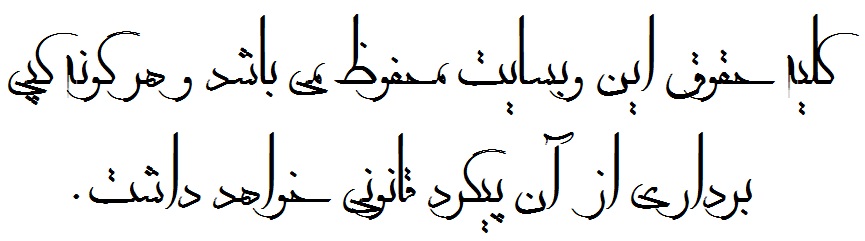 کلیه حقوق این وبسایت محفوظ می باشد و هرگونه کپی
برداری از آن پیگرد قانونی خواهد داشت.